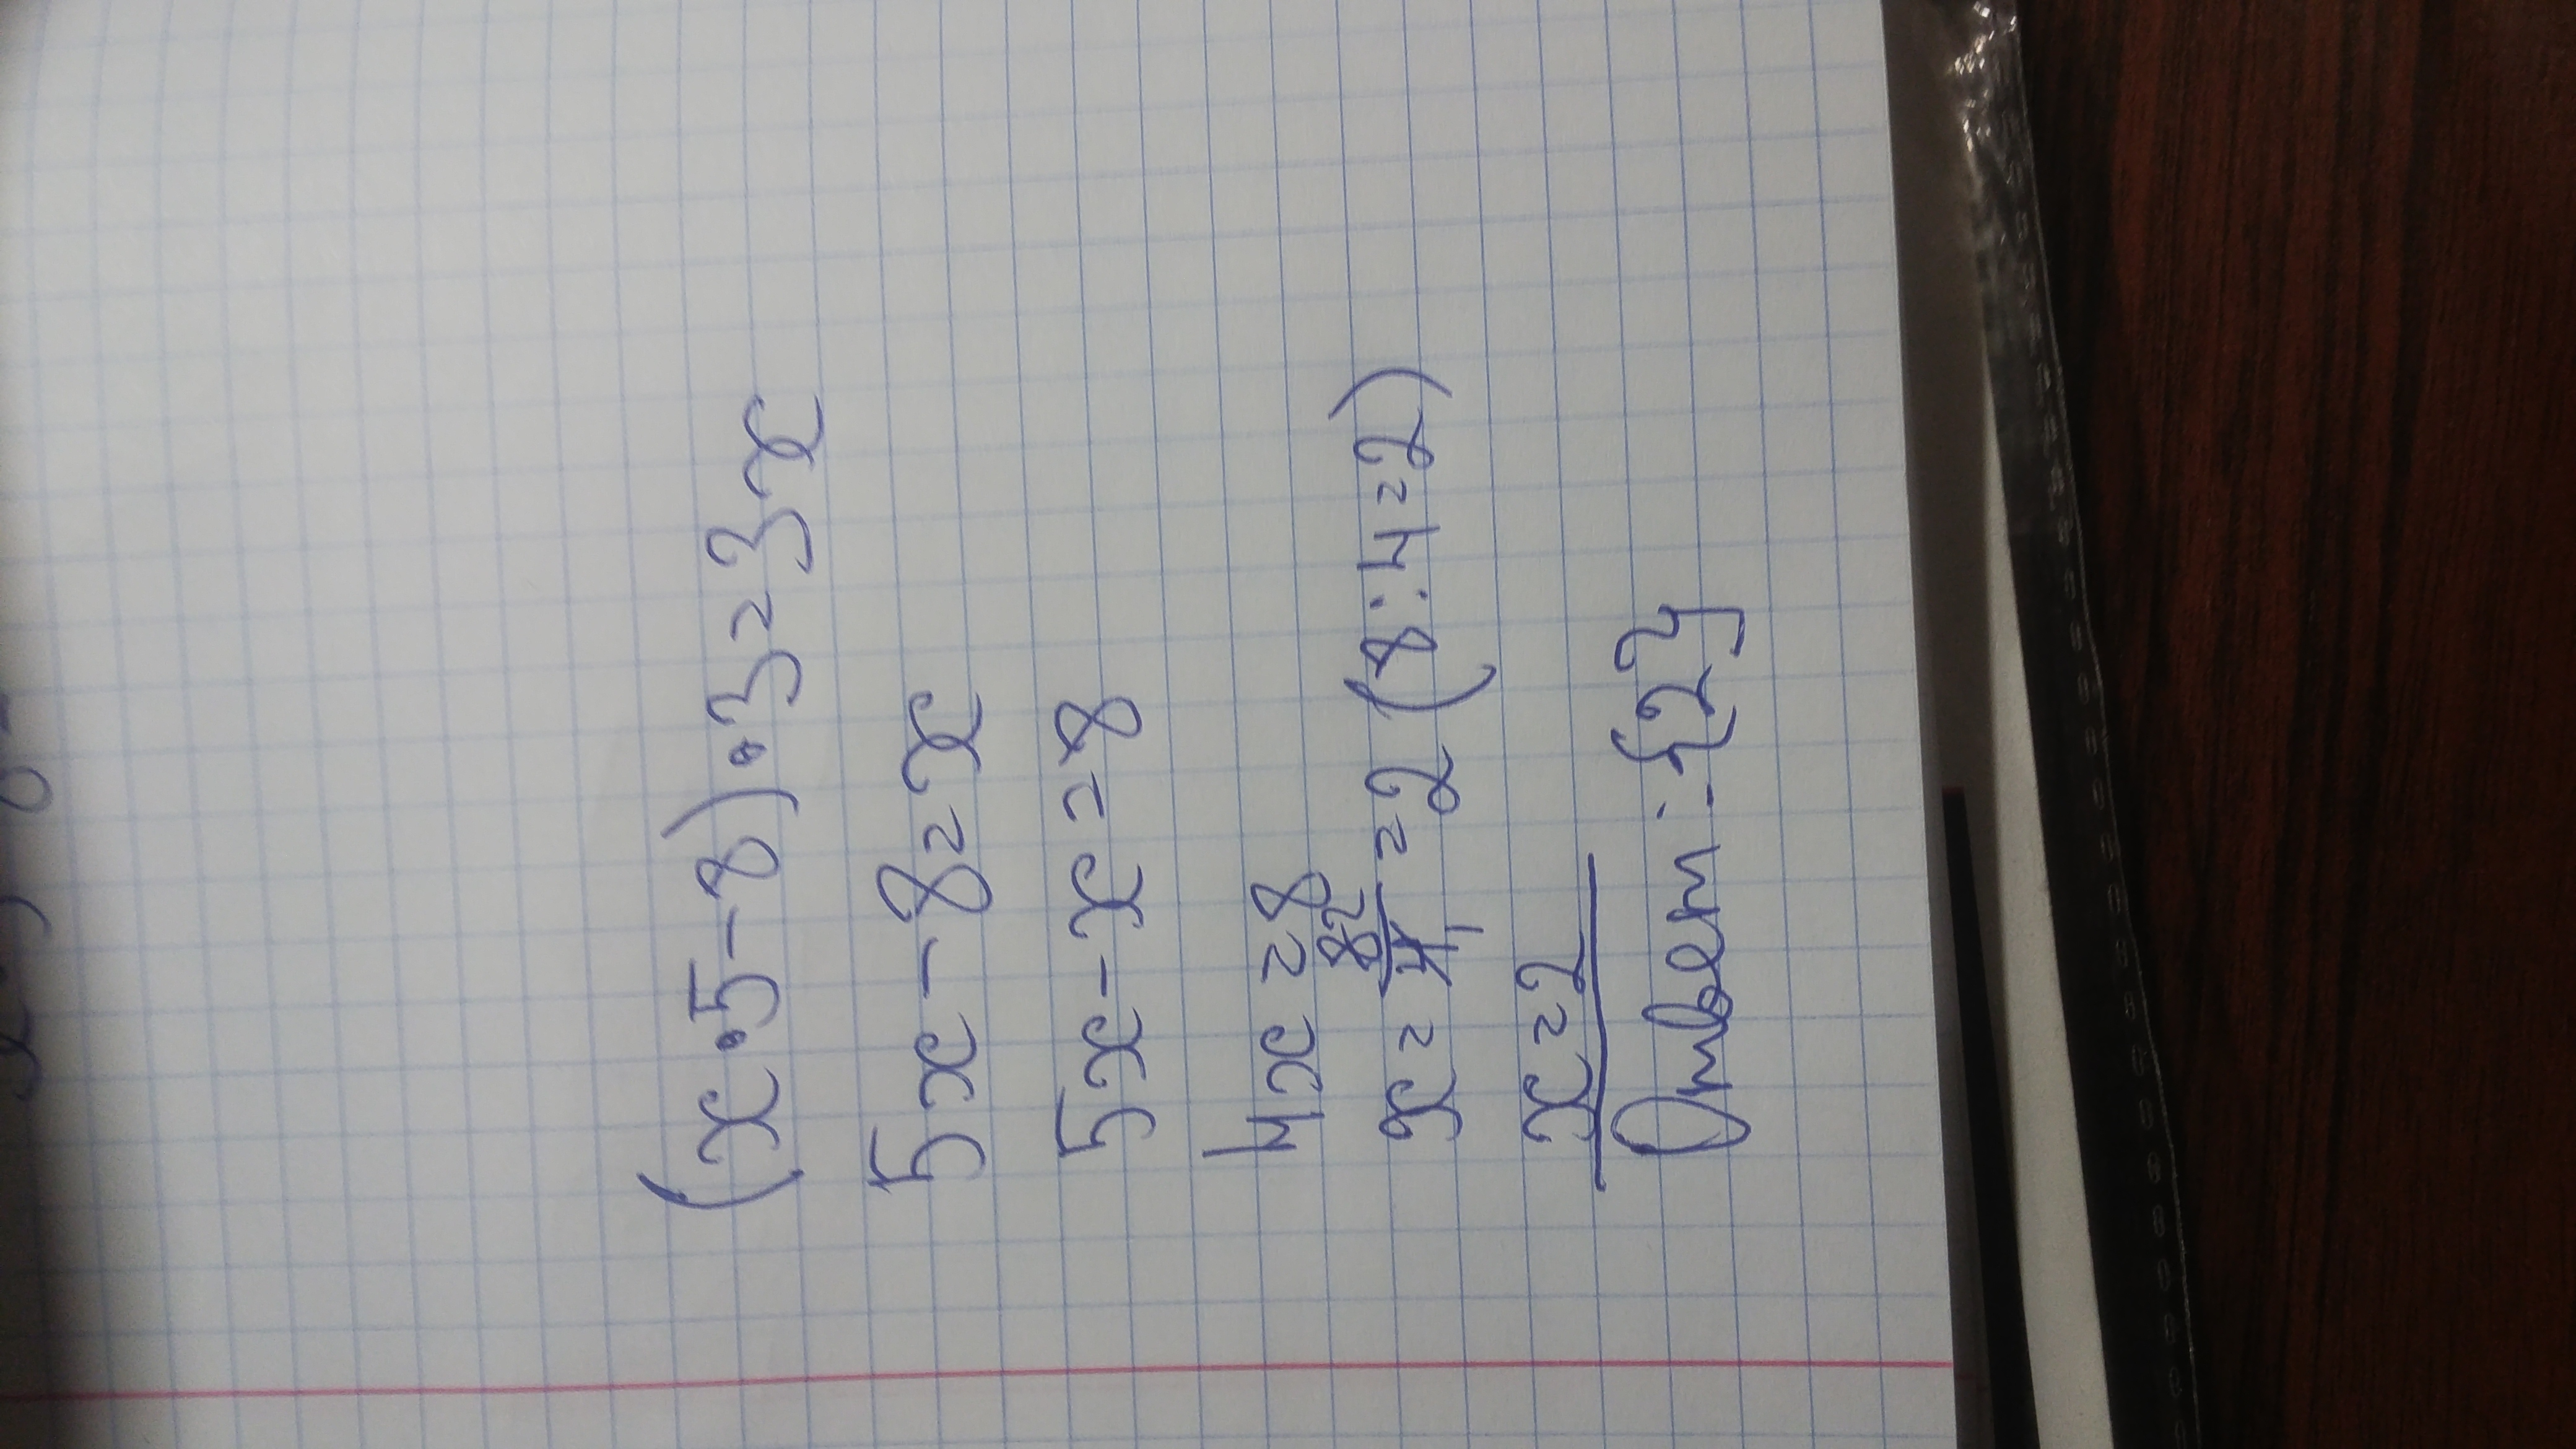 (x·5-8)·3=3x
5x-8=x
5x-x=8
4x=8
x=8/4=2 (8:4=2)
x=2
Ответ: {2}